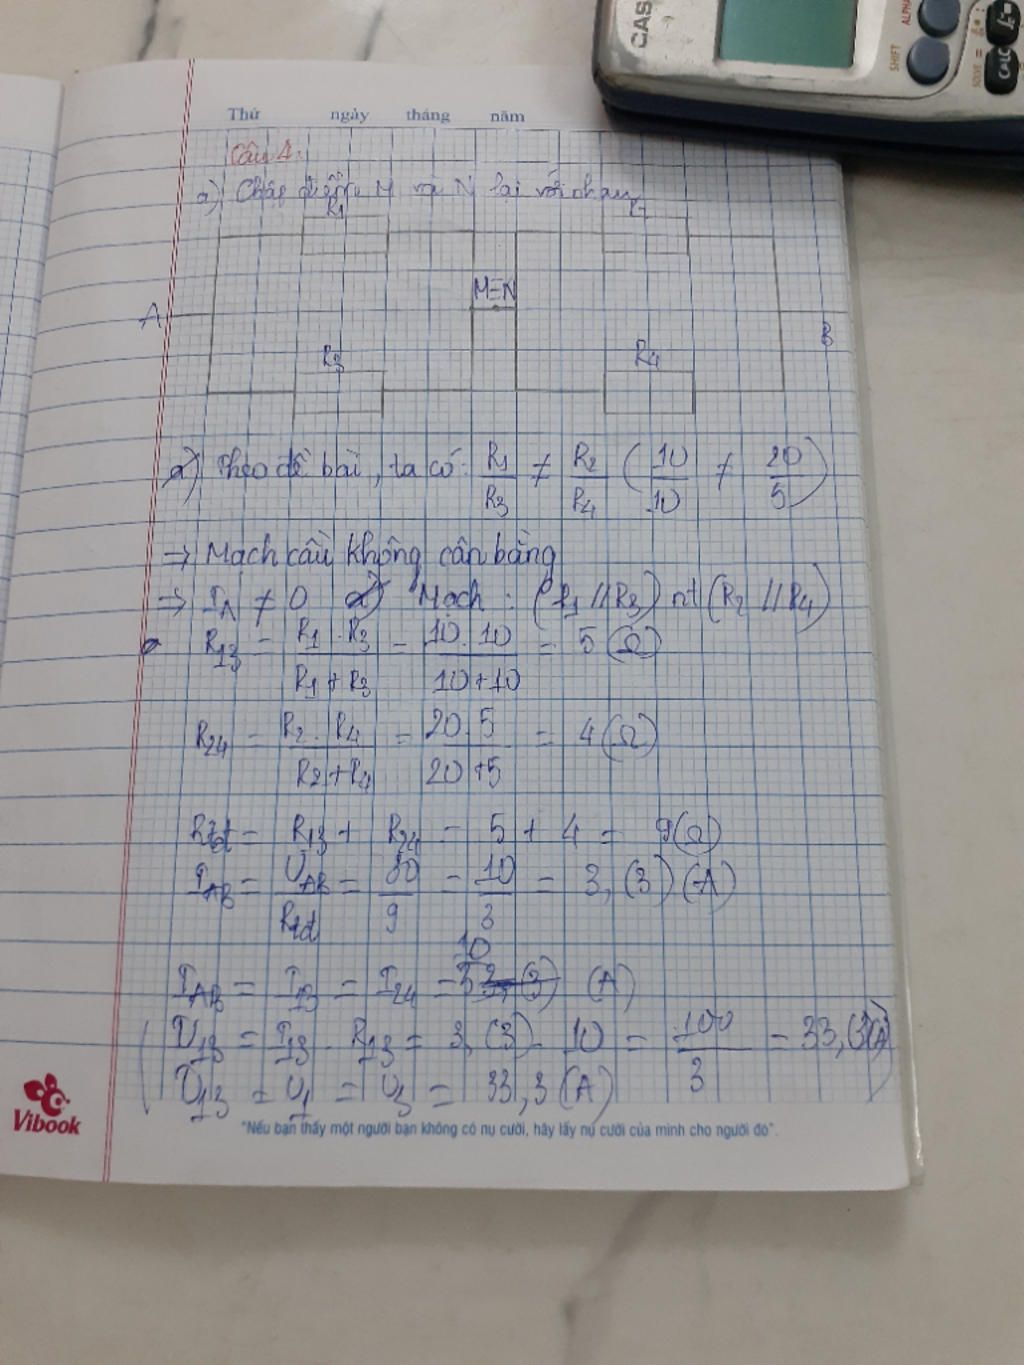 Thứ ngày tháng năm
Câu 4:
a) Chập điểm M và N lại với nhau
R1
M≡N
A
B
R3 R4
a) Theo đề bài, ta có: R1/R3 ≠ R2/R4 (10/10 ≠ 20/5)
→ Mạch cầu không cân bằng
→ IA ≠ 0 a) Mạch: (R1 // R3) nt (R2 // R4)
R13 = R1 . R3 / R1 + R3 = 10 . 10 / 10 + 10 = 5 (Ω)
R24 = R2 . R4 / R2 + R4 = 20 . 5 / 20 + 5 = 4 (Ω)
Rtđ = R13 + R24 = 5 + 4 = 9 (Ω)
IAB = UAB / Rtđ = 30 / 9 = 10 / 3 = 3,(3) (A)
IAB = I13 = I24 = 10 / 3 (A)
U13 = I13 . R13 = 3,(3) . 10 = 100 / 3 = 33,(3)(A)
U13 = U1 = U3 = 33,3 (A)
Vibook
"Nếu bạn thấy một người bạn không có nụ cười, hãy lấy nụ cười của mình cho người đó".
CAS
SHIFT
ALPHA
SOLVE =
CALC